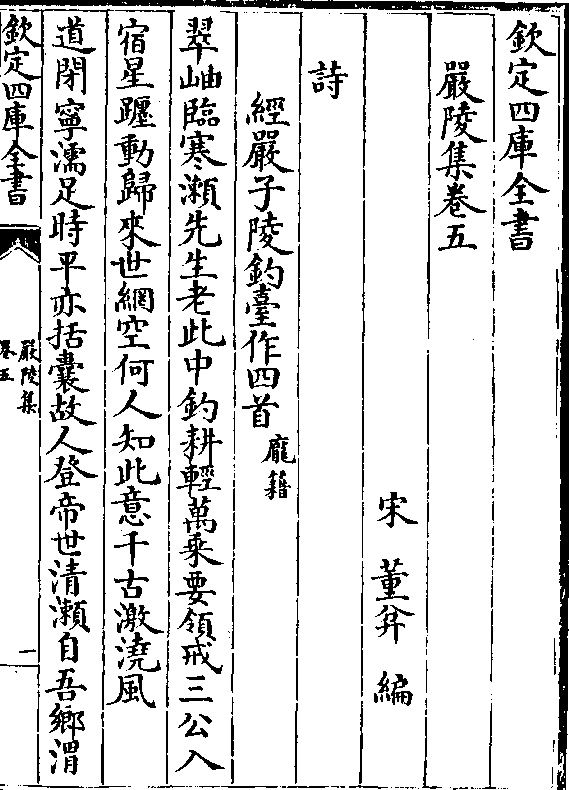 欽定四庫全書
嚴陵集卷五
宋 董弅 編
詩
經嚴子陵釣臺作四首 龐籍
翠岫臨寒瀬先生老此中釣耕輕萬乘要領戒三公入
宿星躔動歸來世網空何人知此意千古激澆風
道閉寧濡足時平亦括囊故人登帝世清瀬自吾鄉渭
欽定四庫全書
嚴陵集
卷五
一